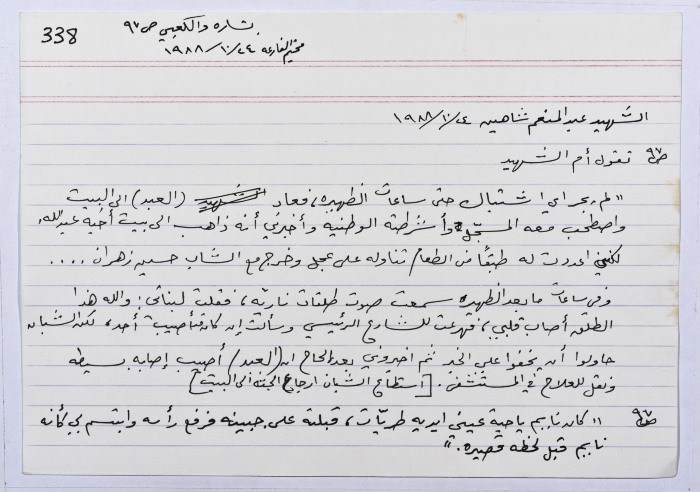 338
بشاره والكعبي ص ٩٢
مخيم الفارعه ٢٤/١٠/١٩٨٨
الشهيد عبد المنعم شاهين ٢٤/١٠/١٩٨٨
ص٩٢ تقول أم الشهيد
"لم يجر اي اشتباك حتى ساعات الظهيره، فعاد (العبد) الى البيت
واصطحب معه المسجّل وأشرطته الوطنيه وأخبرني أنه ذاهب الى بيت أخيه عبدالله،
لكنني اعددت له طبقاً من الطعام تناوله على عجل وخرج مع الشاب حسين زهران ....
وفي ساعات ما بعد الظهيره سمعت صوت طلقات ناريه، فقلت لبناتي: والله هذا
الطلق أصاب قلبي، فهرعت للشارع الرئيسي وسألت إن كان أصيب أحد، لكن الشبان
حاولوا أن يخفوا علي الخبر ثم اخبروني بعد الحاح ان (العبد) أصيب إصابه بسيطه
ونقل للعلاج في المستشفى. [استطاع الشبان ارجاع الجثه الى البيت]
ص٩٢ "كان نايم ياحبة عيني ايديه طريّات، قبلته على جبينه فرفع رأسه وابتسم لي كأنه
نايم قبل لحظه قصيره."